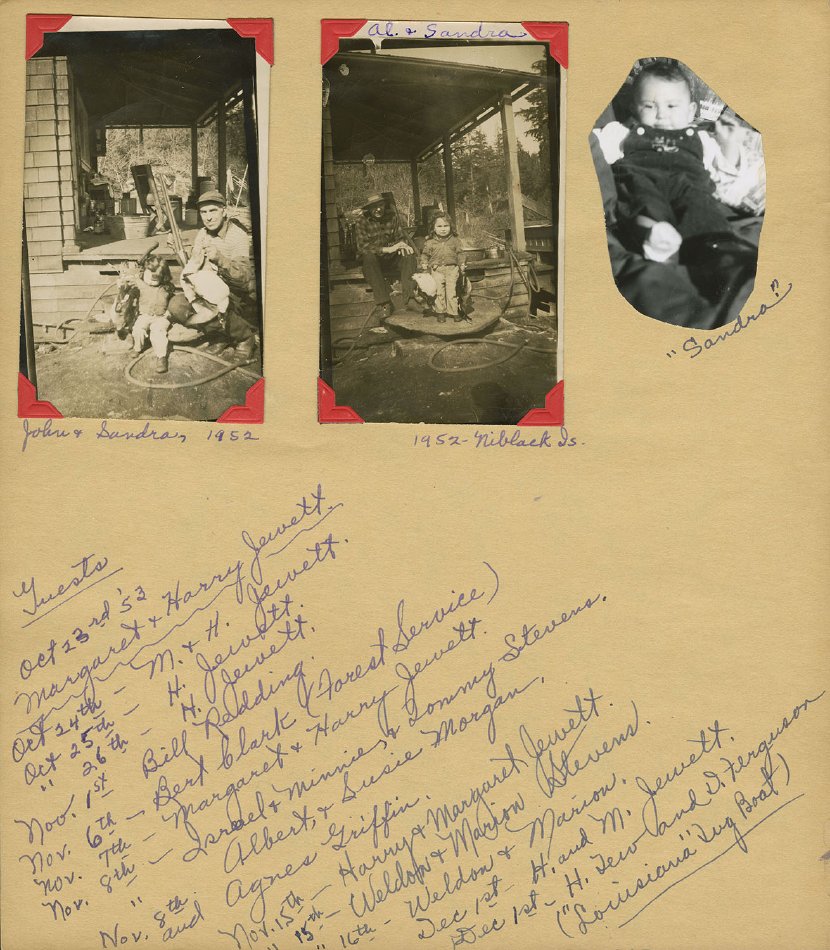 Al. & Sandra
John & Sandra, 1952
1952 - Niblack Is.
"Sandra"
Guests
Oct 23rd '53
Margaret & Harry Jewett.
Oct 24th - M. & H. Jewett.
Oct 25th - H. Jewett.
" 26th - H. Jewett.
Nov. 1st Bill Redding.
Nov. 6th - Bert Clark (Forest Service)
Nov. 7th - Margaret & Harry Jewett.
Nov. 8th - Israel & Minnie, & Tommy Stevens.
" Albert, & Susie Morgan,
Nov. 8th and Agnes Griffin.
Nov. 15th - Harry & Margaret Jewett.
" 15th - Weldon & Marion Stevens.
" 16th - Weldon & Marion.
Dec 1st - H. and M. Jewett.
Dec 1st - H. Tew and D. Ferguson
("Louisiana" Tug Boat)